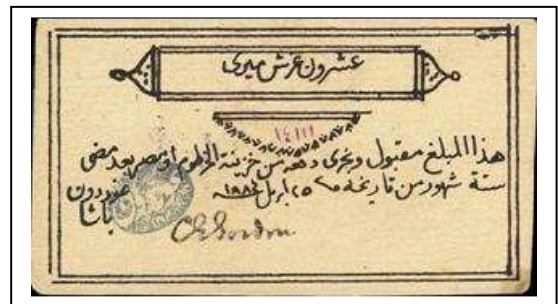 عشرون غرش ميرى
١٤١١١
هذا المبلغ مقبول ويجرى دفعه من خزينة الخرطوم او مصر بعد مضى
ستة شهور من تاريخه ٢٥ ابريل ١٨٨٤
غوردون
باشا
C G Gordon